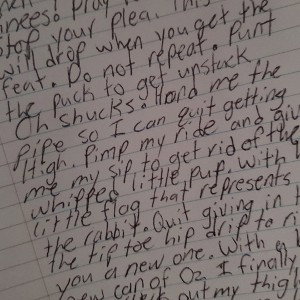 inees! Pray
stop your plea. This
will drop when you get the
feat. Do not repeat. Punt
the puck to get unstuck
Oh shucks. Hand me the
pipe so I can quit getting
High. Pimp my ride and giv
me my sip to get rid of the
whipped little pup. With a
little flag that represents
the rabbit. Quit giving in t
the tip toe hip drop to ri
you a new one. With a
new can of Oz. I finally
out my thig